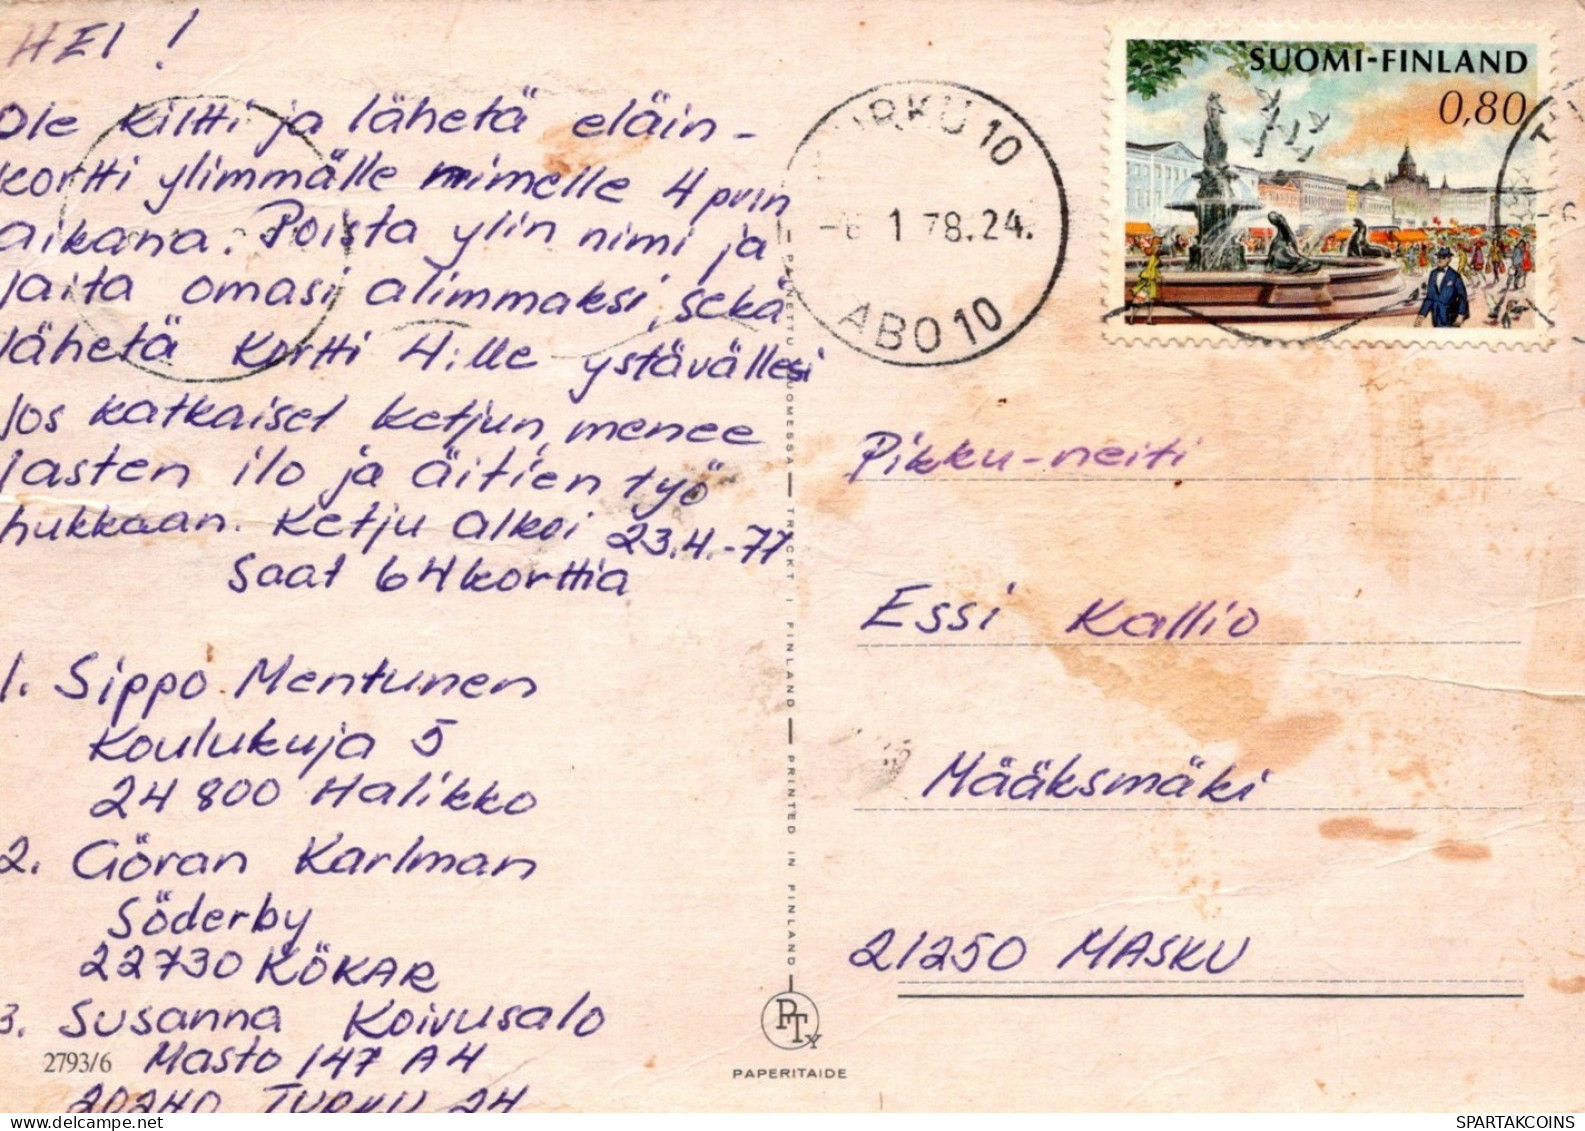 HEI !
Ole kiltti ja lähetä eläin-
kortti ylimmälle nimelle 4 pvin
aikana. Poista ylin nimi ja
laita omasi alimmaksi, sekä
lähetä kortti 4:lle ystävällesi
Jos katkaiset ketjun, menee
lasten ilo ja äitien työ
hukkaan. Ketju alkoi 23.4.-77
Saat 64 korttia
1. Sippo Mentunen
Koulukuja 5
24800 Halikko
2. Göran Karlman
Söderby
22730 KÖKAR
3. Susanna Koivusalo
2793/6 Masto 147 A 4
20240 TURKU 24
PAINETTU SUOMESSA — TRYCKT I FINLAND — PRINTED IN FINLAND
PTy
PAPERITAIDE
TURKU 10
1 78.24.
ÅBO 10
SUOMI-FINLAND
0,80
Pikku-neiti
Essi Kallio
Määksmäki
21250 MASKU
SPARTAKCOINS